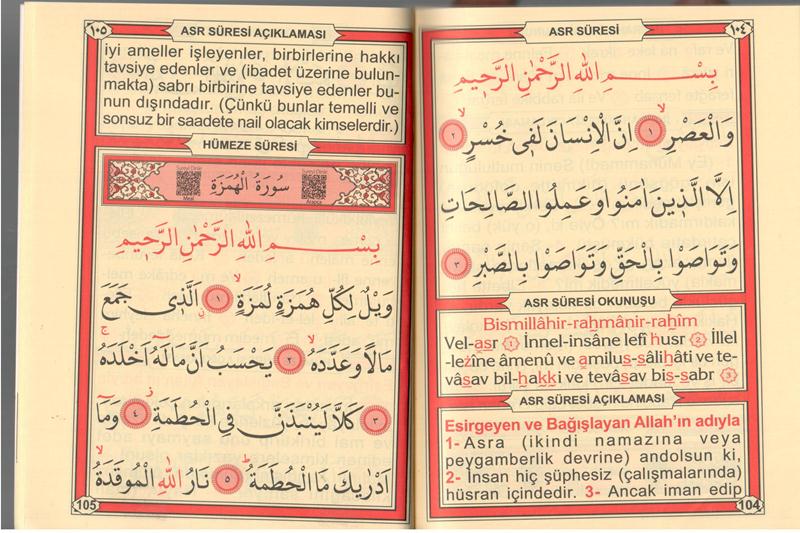 ASR SÛRESİ
١٠٤
بِسْــــمِ اللهِ الرَّحْمٰنِ الرَّحٖيمِ
وَالْعَصْرِۙ ﴿١﴾ اِنَّ الْاِنْسَانَ لَفٖى خُسْرٍۙ ﴿٢﴾
اِلَّا الَّذٖينَ اٰمَنُوا وَعَمِلُوا الصَّالِحَاتِ
وَتَوَاصَوْا بِالْحَقِّ وَتَوَاصَوْا بِالصَّبْرِ ﴿٣﴾
ASR SÛRESİ OKUNUŞU
Bismillâhir-rahmânir-rahîm
Vel-asr 1 İnnel-insâne lefî husr 2 İllel
-lezîne âmenû ve amilus-sâlihâti ve te-
vâsav bil-hakki ve tevâsav bis-sabr 3
ASR SÛRESİ AÇIKLAMASI
Esirgeyen ve Bağışlayan Allah'ın adıyla
1- Asra (ikindi namazına veya
peygamberlik devrine) andolsun ki,
2- İnsan hiç şüphesiz (çalışmalarında)
hüsran içindedir. 3- Ancak iman edip
104
١٠٥
ASR SÛRESİ AÇIKLAMASI
iyi ameller işleyenler, birbirlerine hakkı
tavsiye edenler ve (ibadet üzerine bulun-
makta) sabrı birbirine tavsiye edenler bu-
nun dışındadır. (Çünkü bunlar temelli ve
sonsuz bir saadete nail olacak kimselerdir.)
HÜMEZE SÛRESİ
سُورَةُ الْهُمَزَةِ
بِسْــــمِ اللهِ الرَّحْمٰنِ الرَّحٖيمِ
وَيْلٌ لِكُلِّ هُمَزَةٍ لُمَزَةٍۙ ﴿١﴾ اَلَّذٖى جَمَعَ
مَالًا وَعَدَّدَهُۙ ﴿٢﴾ يَحْسَبُ اَنَّ مَالَهُٓ اَخْلَدَهُۚ
﴿٣﴾ كَلَّا لَيُنْبَذَنَّ فِى الْحُطَمَةِۘ ﴿٤﴾ وَمَٓا
اَدْرٰيكَ مَا الْحُطَمَةُۜ ﴿٥﴾ نَارُ اللهِ الْمُوقَدَةُ
105